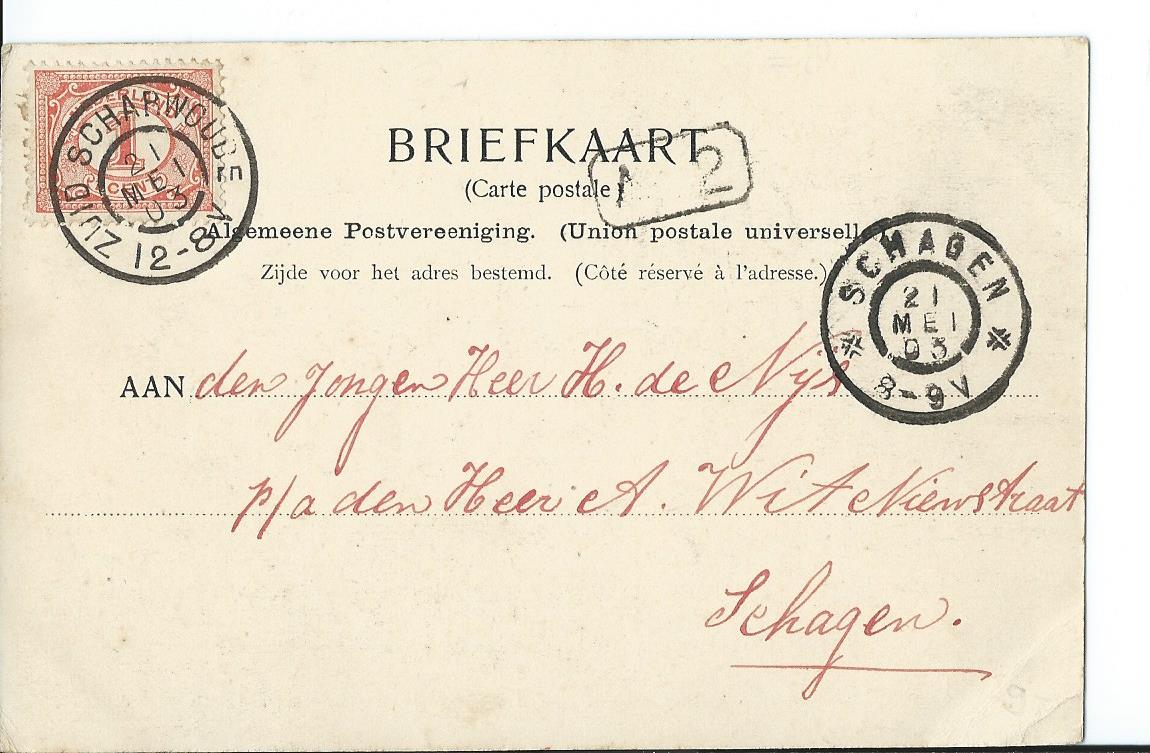 BRIEFKAART
(Carte postale)
Algemeene Postvereeniging. (Union postale universell
Zijde voor het adres bestemd. (Côté réservé à l'adresse.)
ZUID SCHARWOUDE
21
MEI
03
12-8V
1
CENT
2
SCHAGEN
21
MEI
03
8-9V
AAN den Jongen Heer H. de Nijs
p/a den Heer A. Wit Niewstraat
Schagen.